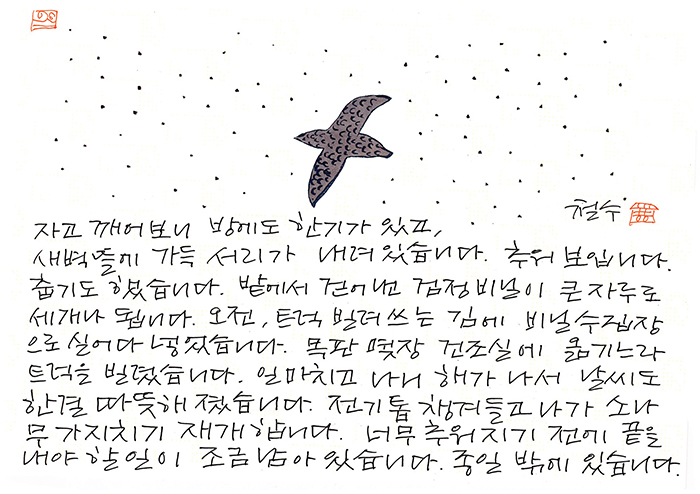 철수
자고 깨어보니 방에도 한기가 있고,
새벽뜰에 가득 서리가 내려있습니다. 추워 보입니다.
춥기도 했습니다. 밭에서 걷어낸 검정비닐이 큰 자루로
세개나 됩니다. 오전, 트럭 빌려쓰는 김에 비닐수집장
으로 실어다 냈습니다. 목판 몇장 건조실에 옮기느라
트럭을 빌렸습니다. 일마치고 나니 해가 나서 날씨도
한결 따뜻해졌습니다. 전기톱 챙겨들고 나가 소나
무 가지치기 재개합니다. 너무 추워지기 전에 끝을
내야 할일이 조금 남아 있습니다. 종일 밖에 있습니다.